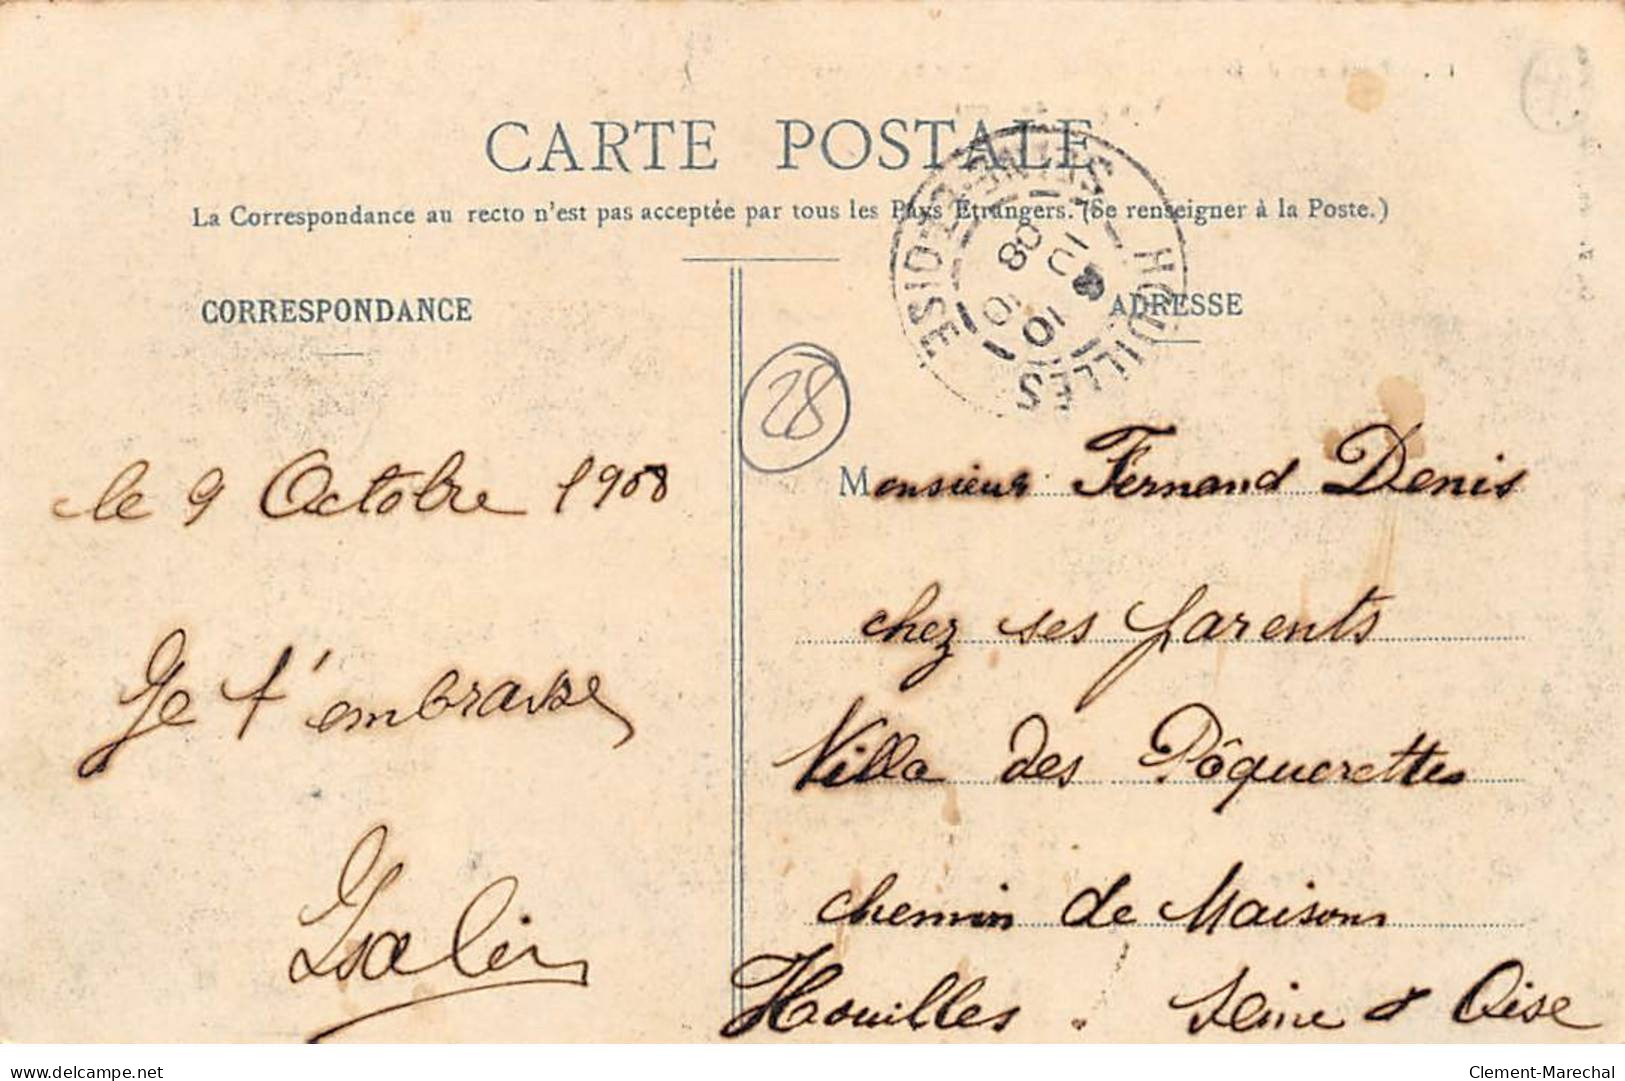 CARTE POSTALE
La Correspondance au recto n'est pas acceptée par tous les Pays Étrangers. (Se renseigner à la Poste.)
CORRESPONDANCE
ADRESSE
HOUILLES
SEINE-ET-OISE
10
10
08
28
le 9 Octobre 1908
Je t'embrasse
Monsieur Fernand Denis
chez ses parents
Villa des Pâquerettes
chemin de Maisons
Houilles. Seine & Oise
www.delcampe.net
Clement-Marechal